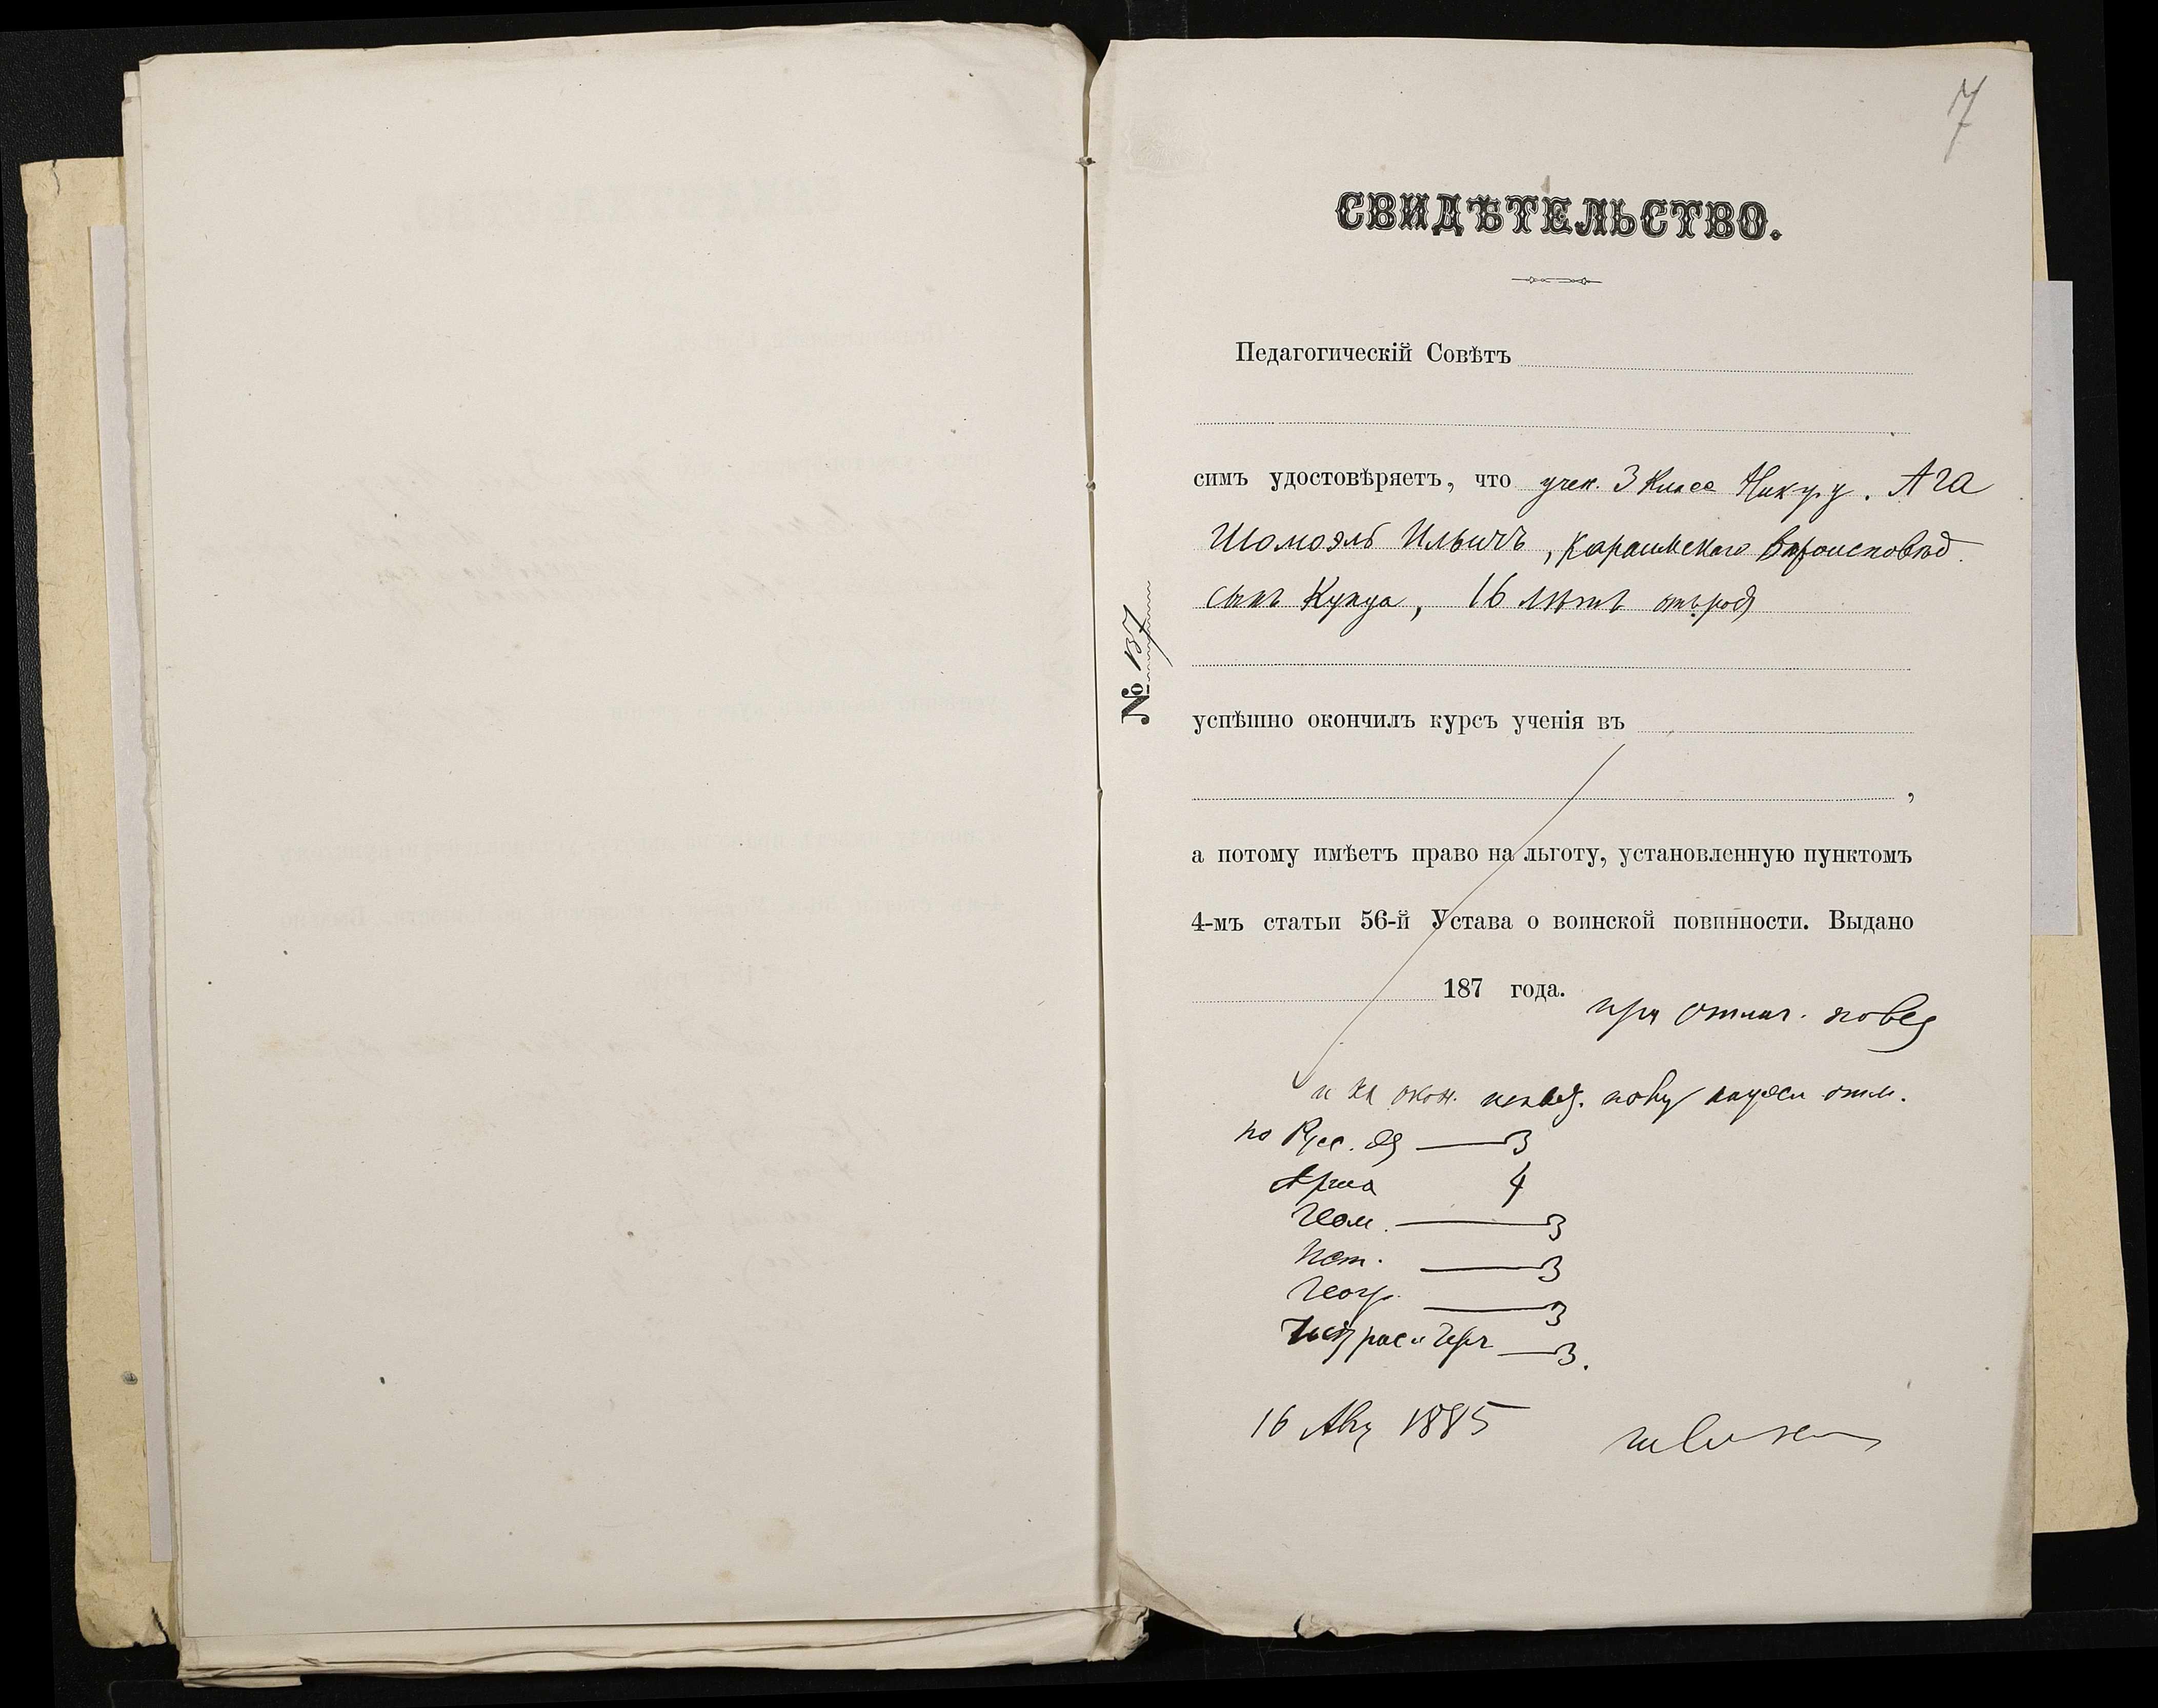 7
СВИДѢТЕЛЬСТВО.
Педагогическій Совѣтъ
симъ удостовѣряетъ, что учен. 3 класса Ага
Шомоэль Ильичъ, караимскаго вѣроисповѣд.
сынъ Купца, 16 лѣтъ отъ род
№ 137
успѣшно окончилъ курсъ ученія въ
,
а потому имѣетъ право на льготу, установленную пунктомъ
4-мъ статьи 56-й Устава о воинской повинности. Выдано
187 года.
при отлич. повед
и на окон.
по Рус. яз — 3
Ариѳ 4
Геом. — 3
Ист. — 3
Геогр. — 3
рис и Черч — 3.
16 Авг 1885